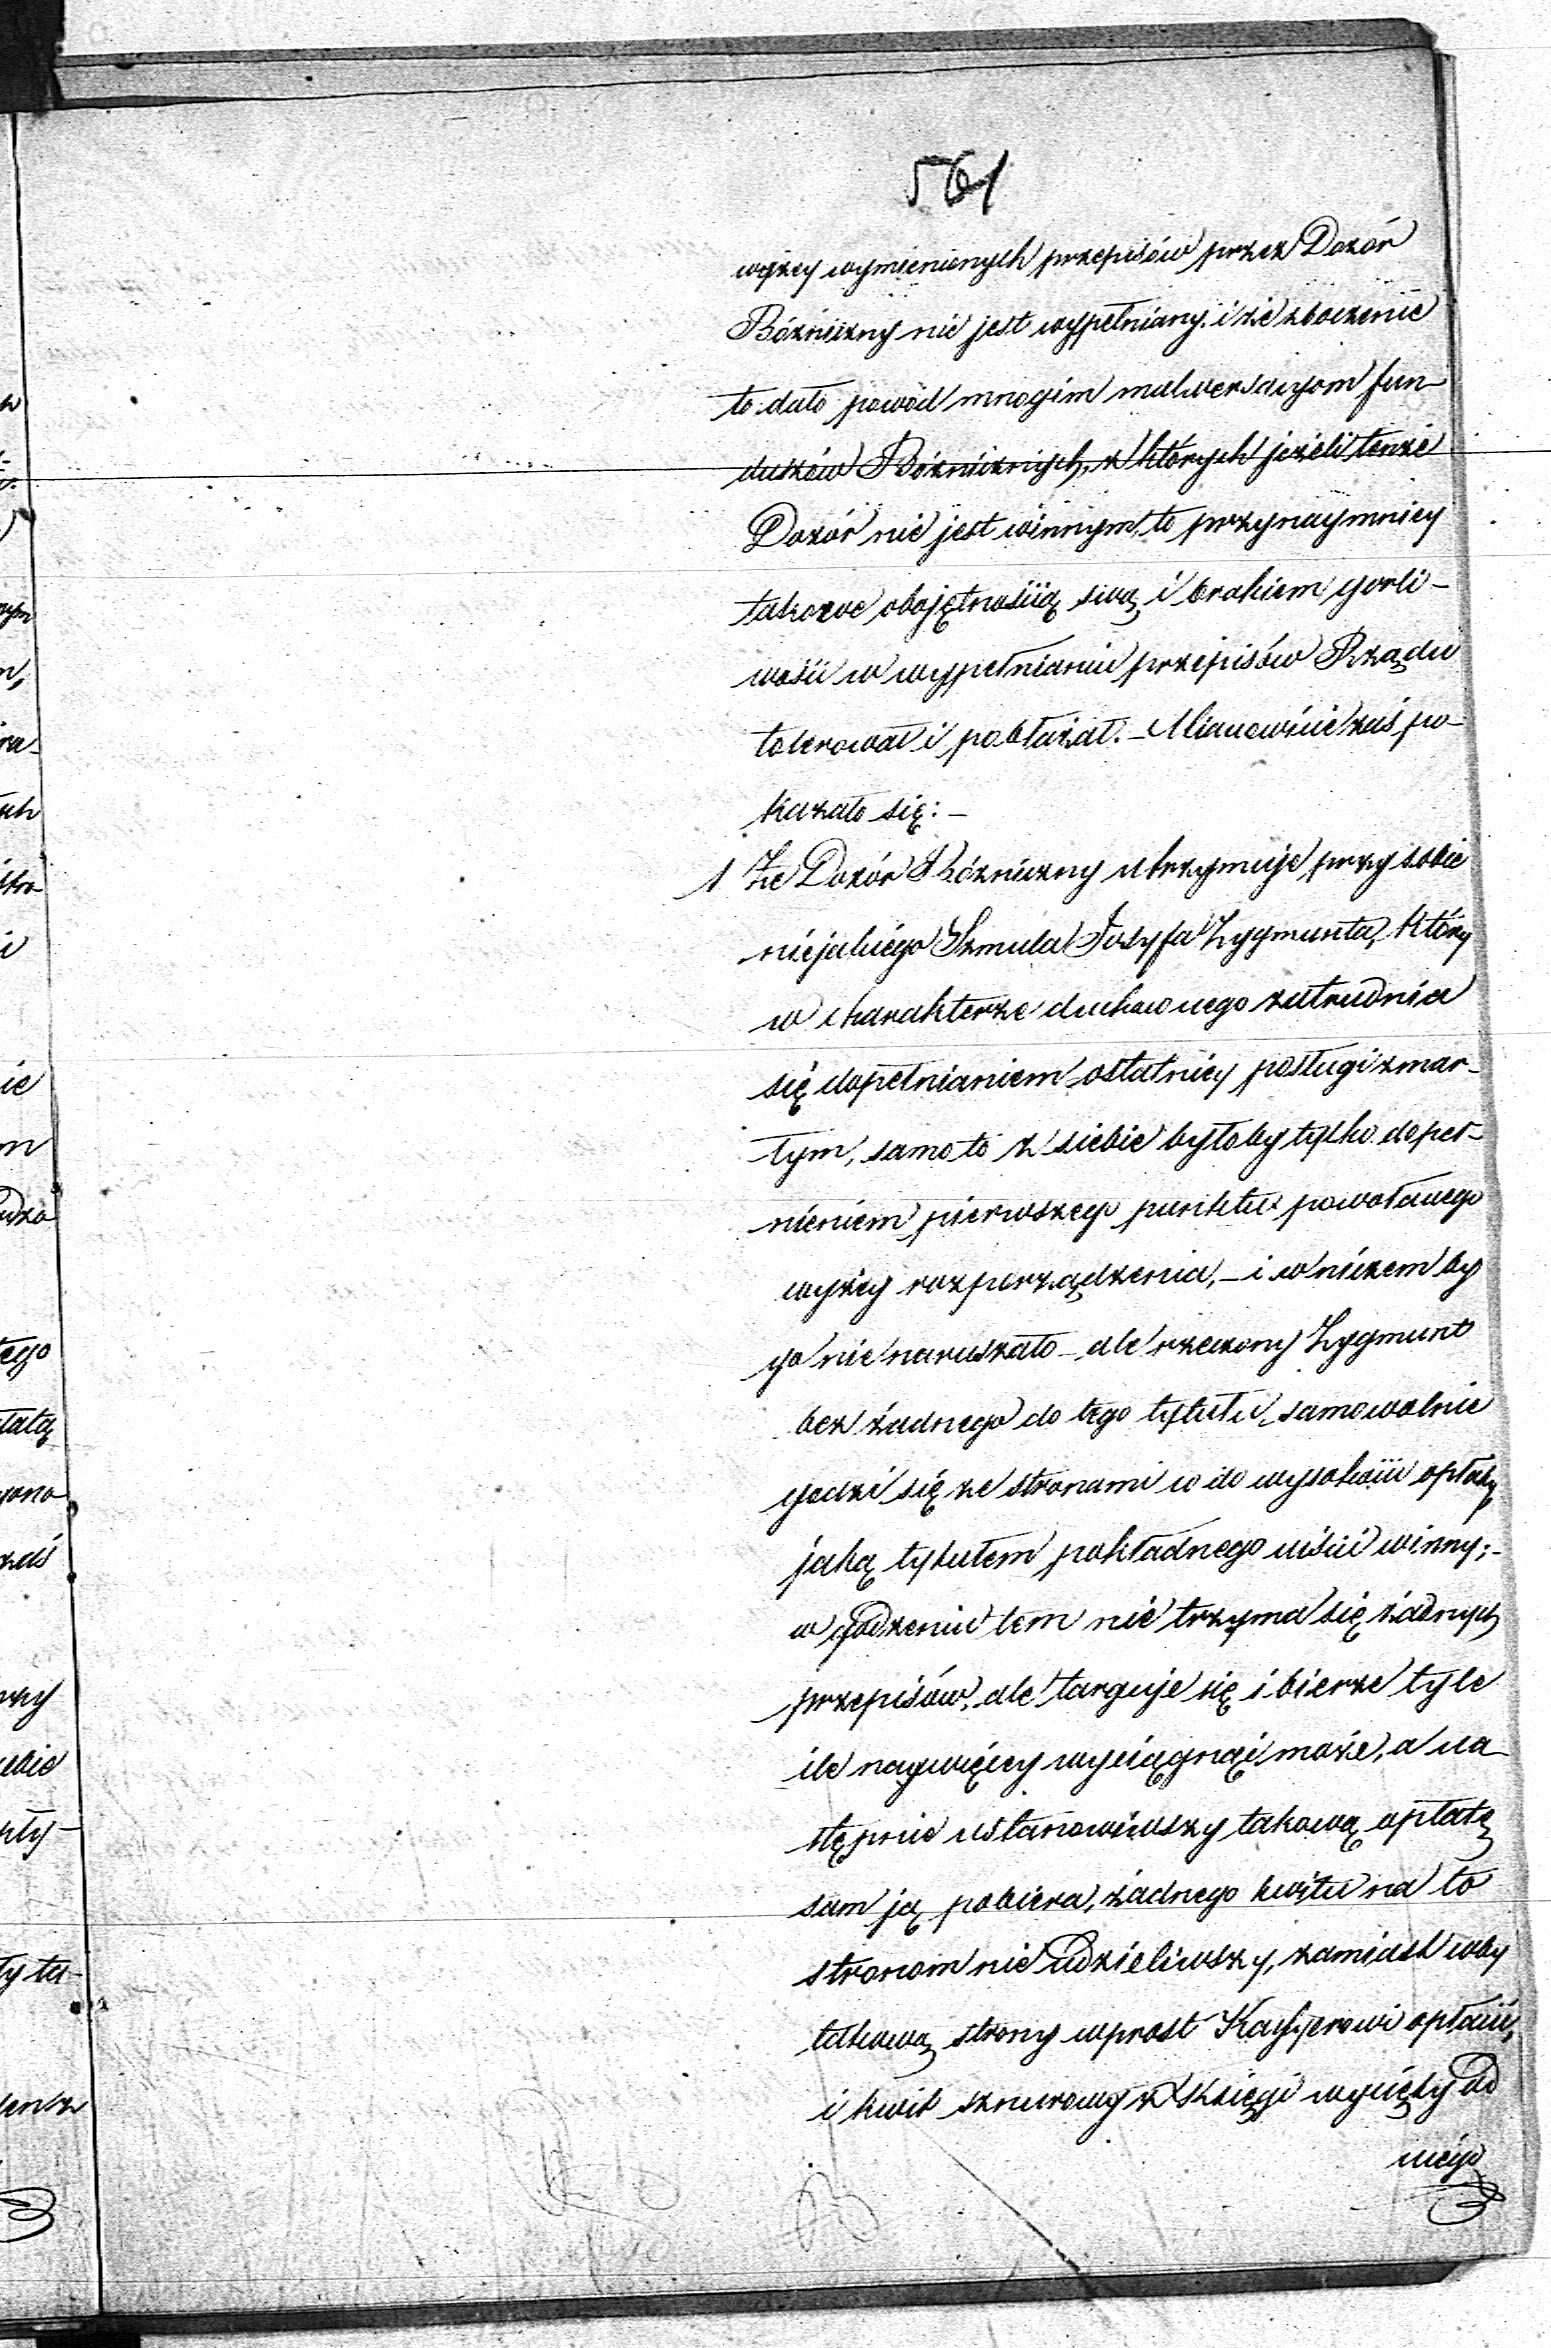 561
wyżey wymienionych przepisów przez Dozór
Bóżniczny nie jest wypełniany. i że zboczenie
to dało powód mnogim malwersacyom fun-
duszów Bóżnicznych, z których jeżeli tenże
Dozór nie jest winnym, to przynaymniey
takowe obojętnością swą i brakiem gorli-
wości w wypełnianiu przepisów Rządu
tolerował i pobłażał. – Mianowicie zaś po-
kazało się: –
1 Że Dozór Bóżniczny utrzymuje przy sobie
niejakiego Szmula Josyfa Zygmunta, który
w charakterze duchownego zatrudnia
się dopełnianiem ostatniey posługi zmar-
łym, samo to z siebie byłoby tylko dopeł-
nieniem pierwszego punktu powołanego
wyżey rozporządzenia, – i w niczem by
go nie naruszało – ale rzeczony Zygmunt
bez żadnego do tego tytułu, samowolnie
godzi się ze stronami co do wysokości opłaty
jaką tytułem pokładnego uiścić winny; –
w godzeniu tem nie trzyma się żadnych
przepisów, ale targuje się i bierze tyle
ile naywięcey wyciągnąć może, a na-
stępnie ustanowiwszy takową opłatę
sam ją pobiera, żadnego kwitu na to
stronom nie udzieliwszy, zamiast coby
takową strony wprost Kassyerowi opłacić,
i kwit sznurowy z Xsięgi wycięty od
niego
w
nym
m,
ra-
ie
m
tego
łatą
gona
zaś
ebie
pły-
ty tu-